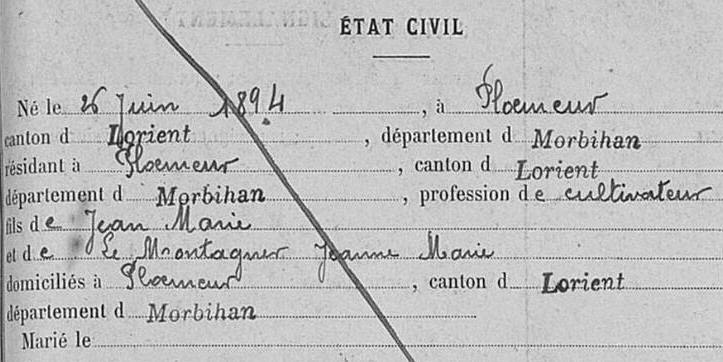 ÉTAT CIVIL
Né le 26 Juin 1894, à Ploemeur
canton d Lorient, département d Morbihan
résidant à Ploemeur, canton d Lorient
département d Morbihan, profession de cultivateur
fils de Jean Marie
et de Le Montagner Jeanne Marie
domiciliés à Ploemeur, canton d Lorient
département d Morbihan
Marié le